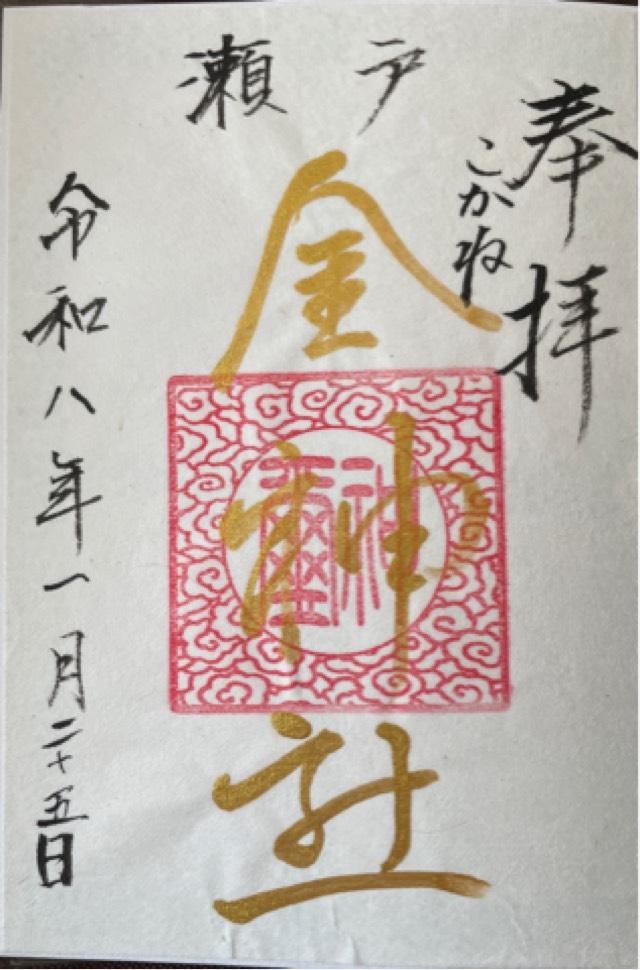 奉拝
こがね
瀬戸
金神社
神璽
令和八年一月二十五日